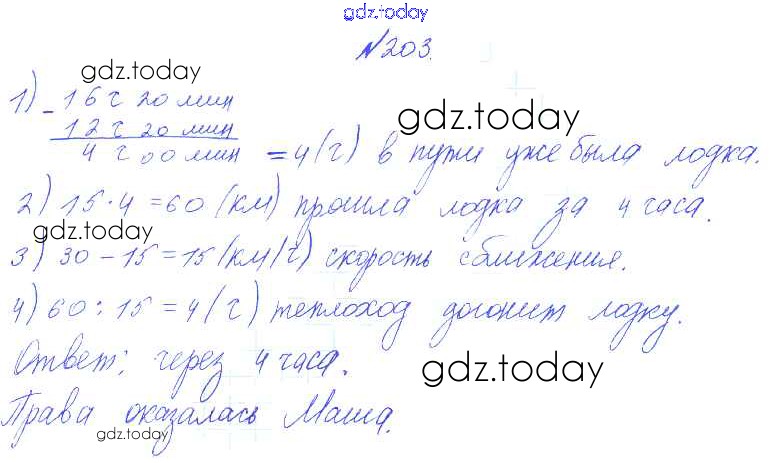 gdz.today
№203.
gdz.today
1) - 16 ч 20 мин
gdz.today
12 ч 20 мин
4 ч 00 мин = 4 (ч) в пути уже была лодка.
2) 15·4 = 60 (км) прошла лодка за 4 часа.
gdz.today
3) 30 - 15 = 15 (км/ч) скорость сближения.
4) 60 : 15 = 4 (ч) теплоход догонит лодку.
Ответ: через 4 часа.
gdz.today
Права оказалась Маша.
gdz.today